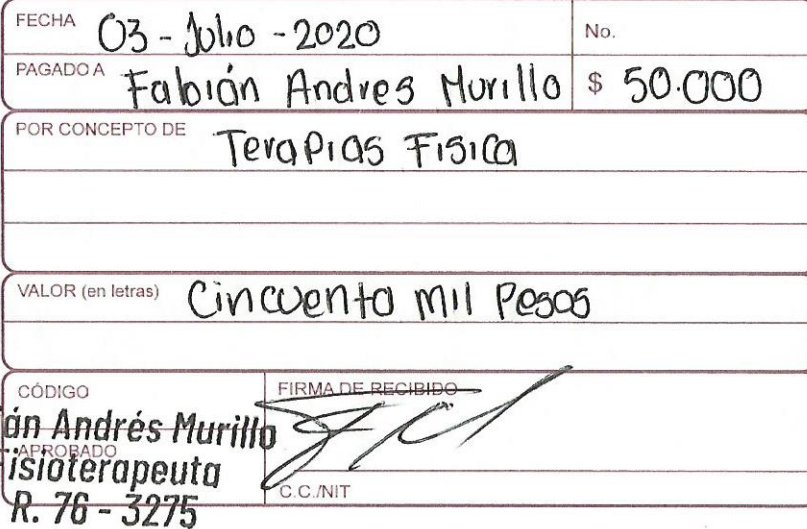 FECHA 03 - Julio - 2020 No.
PAGADO A Fabián Andres Murillo $ 50.000
POR CONCEPTO DE Terapias Fisica
VALOR (en letras) Cincuenta mil Pesos
CÓDIGO FIRMA DE RECIBIDO
án Andrés Murillo
APROBADO
isioterapeuta
C.C./NIT
R. 76 - 3275